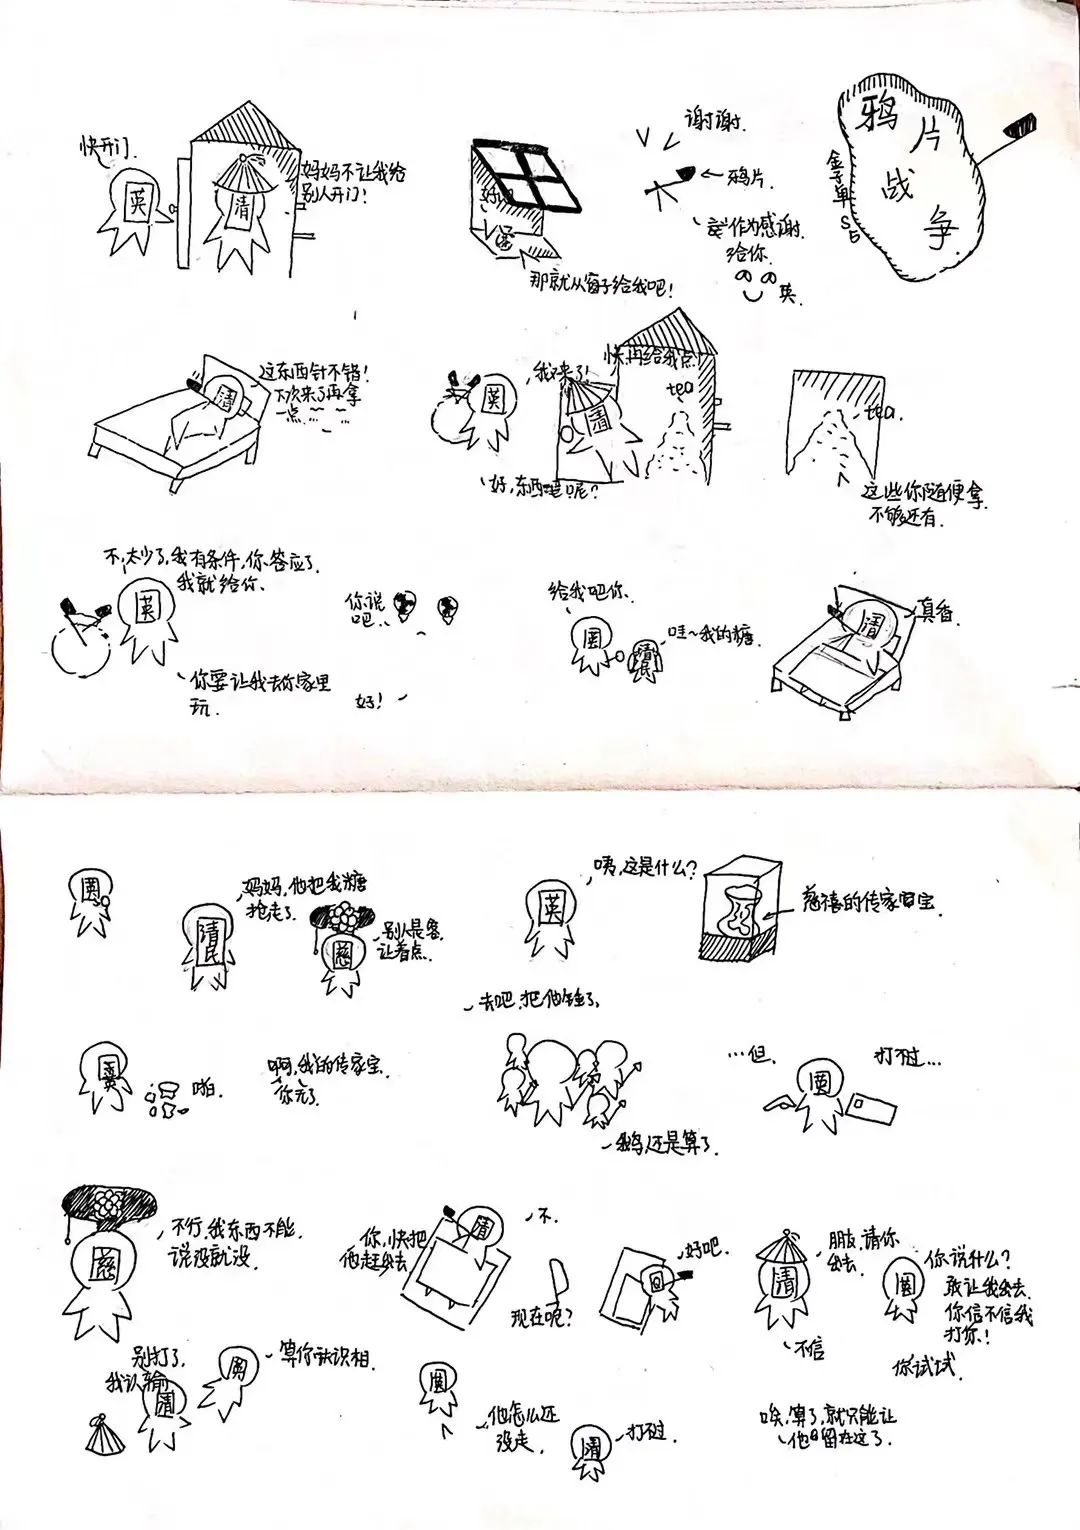 鸦片战争
金子单S5
快开门.
英
清
妈妈不让我给
别人开门!
那就从窗子给我吧!
谢谢.
鸦片.
作为感谢.
给你.
英.
清
这东西针不错!
下次来了再拿
一点.
英
我又来了!
清
快,再给我点!
tea
好,东西呢?
tea.
这些你随便拿.
不够还有.
不,太少了,我有条件,你答应了.
我就给你.
英
你要让我去你家里
玩.
你说
吧.
好!
给我吧你.
清民
哇~我的糖.
清
真香.
清民
妈妈,他把我糖
抢走了.
慈
别人是客.
让着点.
英
咦,这是什么?
慈禧的传家宝.
去吧.把他锤了.
英
啪.
啊,我的传家宝.
你完了.
我还是算了.
…但.
打不过…
慈
不行.我东西不能.
说没就没.
你,快把
他赶出去
清
不.
现在呢?
好吧.
清
朋友.请你
出去.
不信
你说什么?
敢让我出去.
你信不信我
打你!
你试试.
别打了.
我认输
清
算你识相.
他怎么还
没走.
清
打不过.
唉,算了,就只能让
他留在这了.